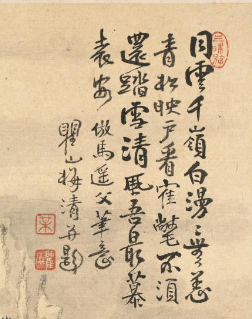 同雲千嶺白漫〻無恙
青松映戶看寉氅不須
還踏雪清風吾最慕
袁安 倣馬遥父筆意
瞿山梅清并題